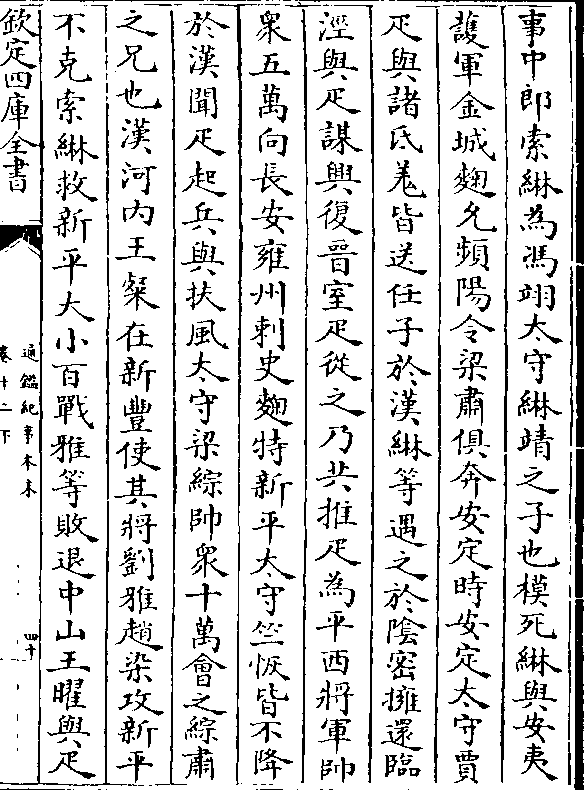 事中郎索綝為馮翊太守綝靖之子也模死綝與安夷
護軍金城麴允頻陽令梁肅俱奔安定時安定太守賈
疋與諸氐羌皆送任子於漢綝等遇之於陰密擁還臨
涇與疋謀興復晉室疋從之乃共推疋為平西將軍帥
衆五萬向長安雍州刺史麴特新平太守竺恢皆不降
於漢聞疋起兵與扶風太守梁綜帥衆十萬會之綜肅
之兄也漢河内王粲在新豐使其將劉雅趙染攻新平
不克索綝救新平大小百戰雅等敗退中山王曜與疋
欽定四庫全書
通鑑紀事本末
卷十二下
四十